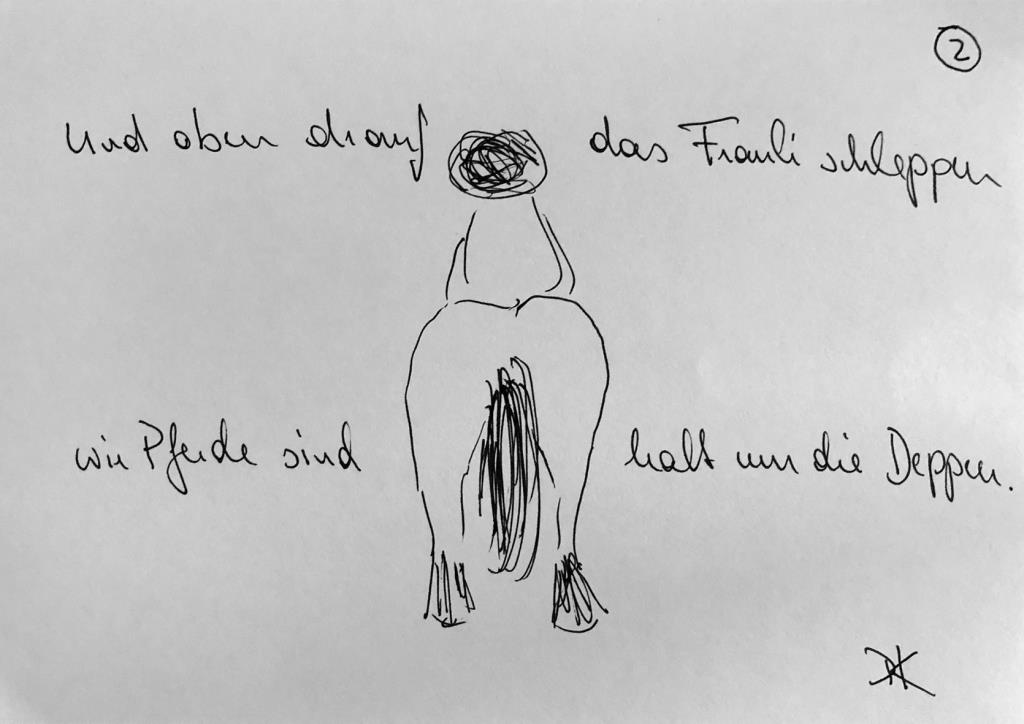 2
Und oben drauf das Frauli schleppen
wir Pferde sind halt nur die Deppen.